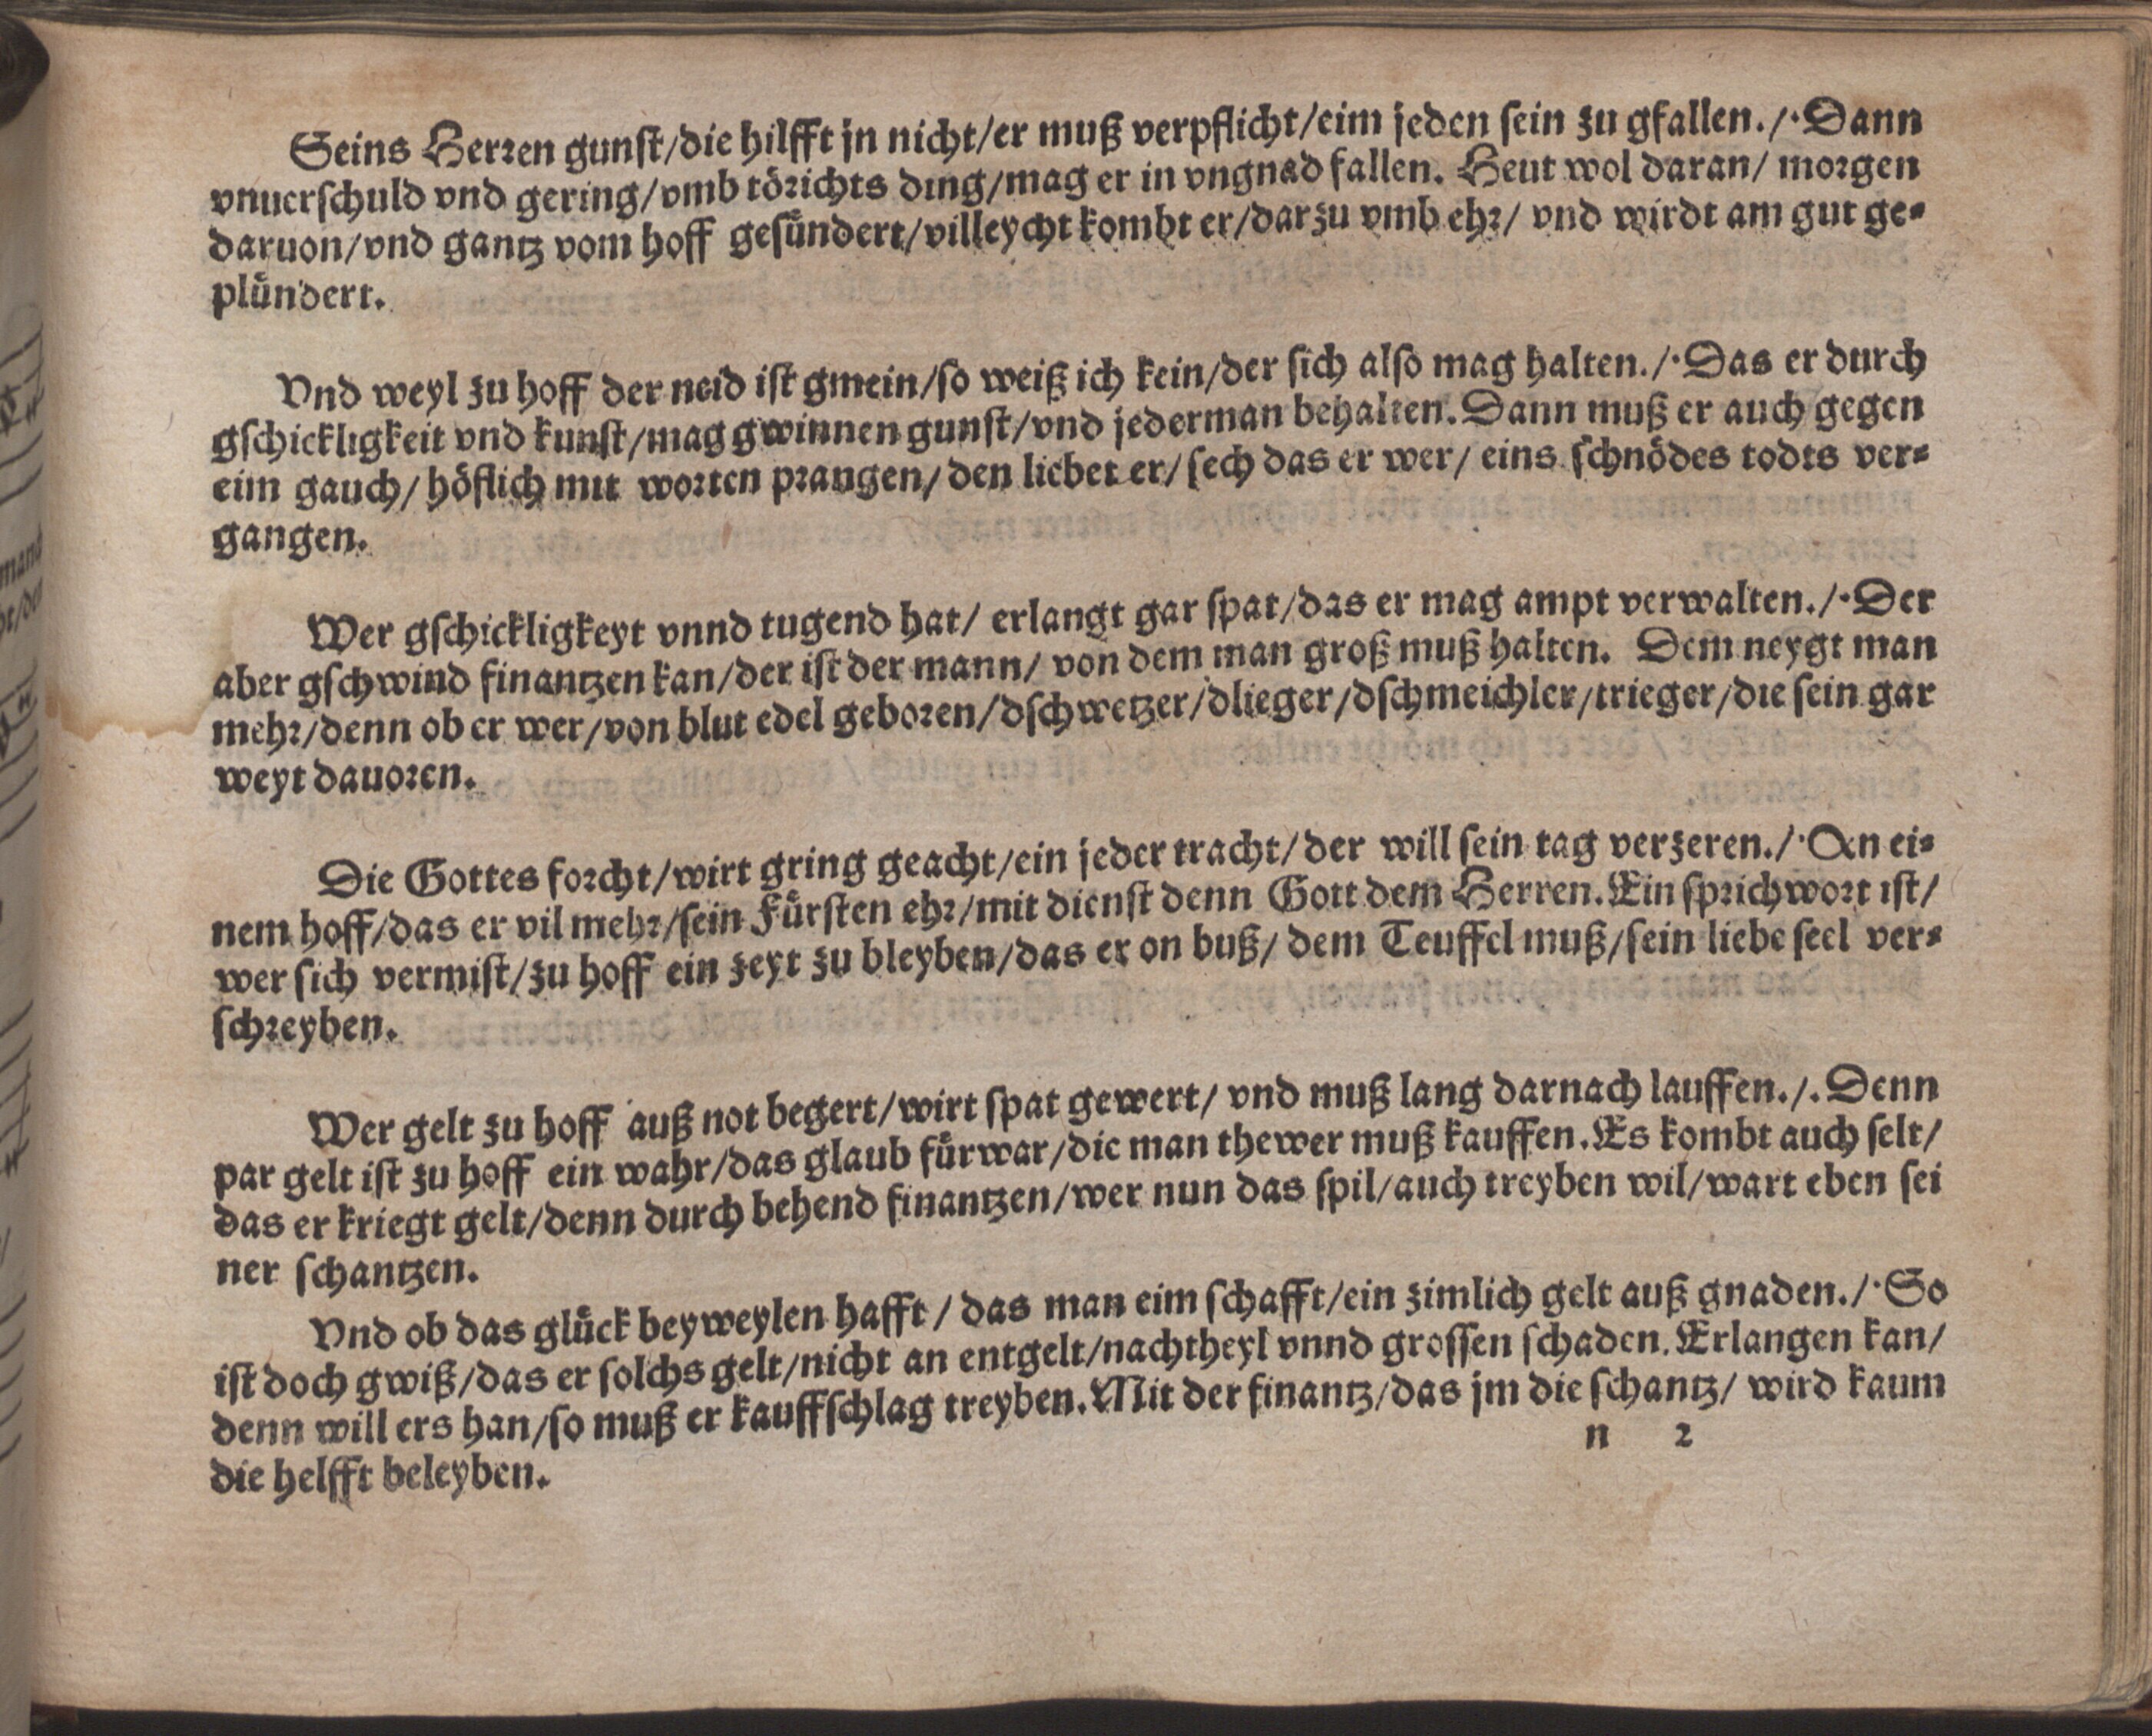 Seins Herren gunſt/die hilfft jn nicht/er muß verpflicht/eim jeden ſein zu gfallen./·Dann
vnuerſchuld vnd gering/vmb törichts ding/mag er in vngnad fallen. Heut wol daran/ morgen
daruon/vnd gantz vom hoff geſündert/villeycht kombt er/darzu vmb ehr/ vnd wirdt am gut ge⸗
plündert.
Vnd weyl zu hoff der neid iſt gmein/ſo weiß ich kein/der ſich alſo mag halten./·Das er durch
gſchickligkeit vnd kunſt/mag gwinnen gunſt/vnd jederman behalten. Dann muß er auch gegen
eim gauch/ höflich mit worten prangen/ den liebet er/ ſech das er wer/ eins ſchnödes todts ver⸗
gangen.
Wer gſchickligkeyt vnnd tugend hat/ erlangt gar ſpat/das er mag ampt verwalten./·Der
aber gſchwind finantzen kan/der iſt der mann/ von dem man groß muß halten. Dem neygt man
mehr/denn ob er wer/von blut edel geboren/dſchwetzer/dlieger/dſchmeichler/trieger/die ſein gar
weyt dauoren.
Die Gottes forcht/wirt gring geacht/ein jeder tracht/der will ſein tag verzeren./·An ei⸗
nem hoff/das er vil mehr/ſein Fürſten ehr/mit dienſt denn Gott dem Herren. Ein ſprichwort iſt/
wer ſich vermiſt/zu hoff ein zeyt zu bleyben/das er on buß/ dem Teuffel muß/ſein liebe ſeel ver⸗
ſchreyben.
Wer gelt zu hoff auß not begert/wirt ſpat gewert/ vnd muß lang darnach lauffen./. Denn
par gelt iſt zu hoff ein wahr/das glaub fürwar/die man thewer muß kauffen. Es kombt auch ſelt/
das er kriegt gelt/denn durch behend finantzen/wer nun das ſpil/auch treyben wil/wart eben ſei
ner ſchantzen.
Vnd ob das glück beyweylen hafft/ das man eim ſchafft/ein zimlich gelt auß gnaden./·So
iſt doch gwiß/das er ſolchs gelt/nicht an entgelt/nachtheyl vnnd groſſen ſchaden. Erlangen kan/
denn will ers han/ſo muß er kauffſchlag treyben. Mit der finantz/das jm die ſchantz/ wird kaum
die helfft beleyben.
n 2